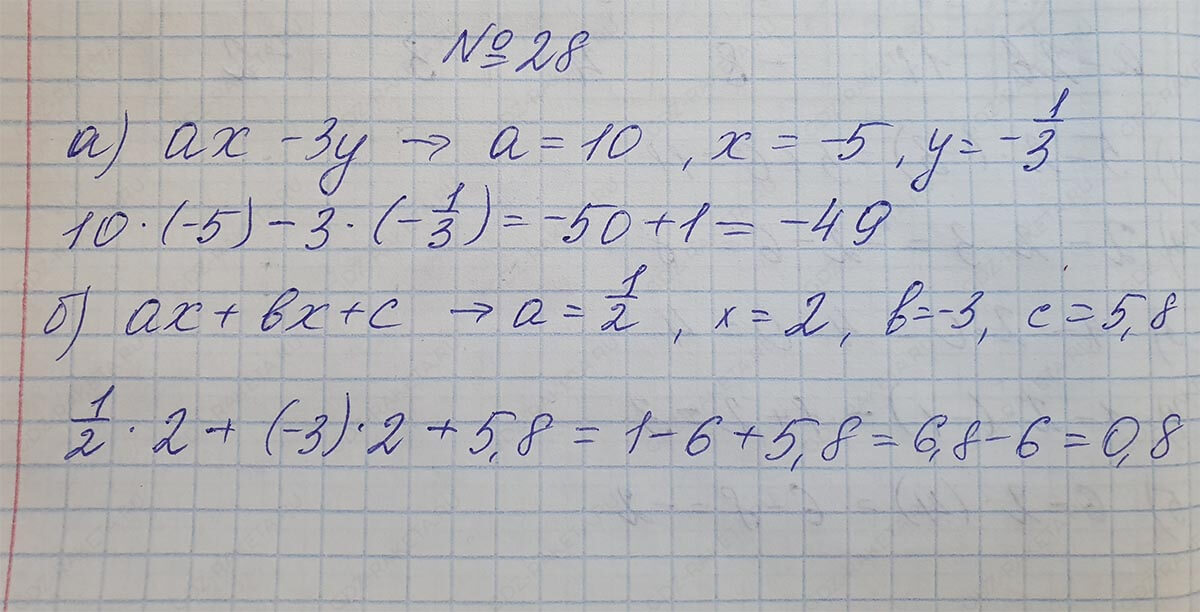 №28
а) ax - 3y → a = 10, x = -5, y = -1/3
10·(-5) - 3·(-1/3) = -50 + 1 = -49
б) ax + bx + c → a = 1/2, x = 2, b = -3, c = 5,8
1/2·2 + (-3)·2 + 5,8 = 1 - 6 + 5,8 = 6,8 - 6 = 0,8